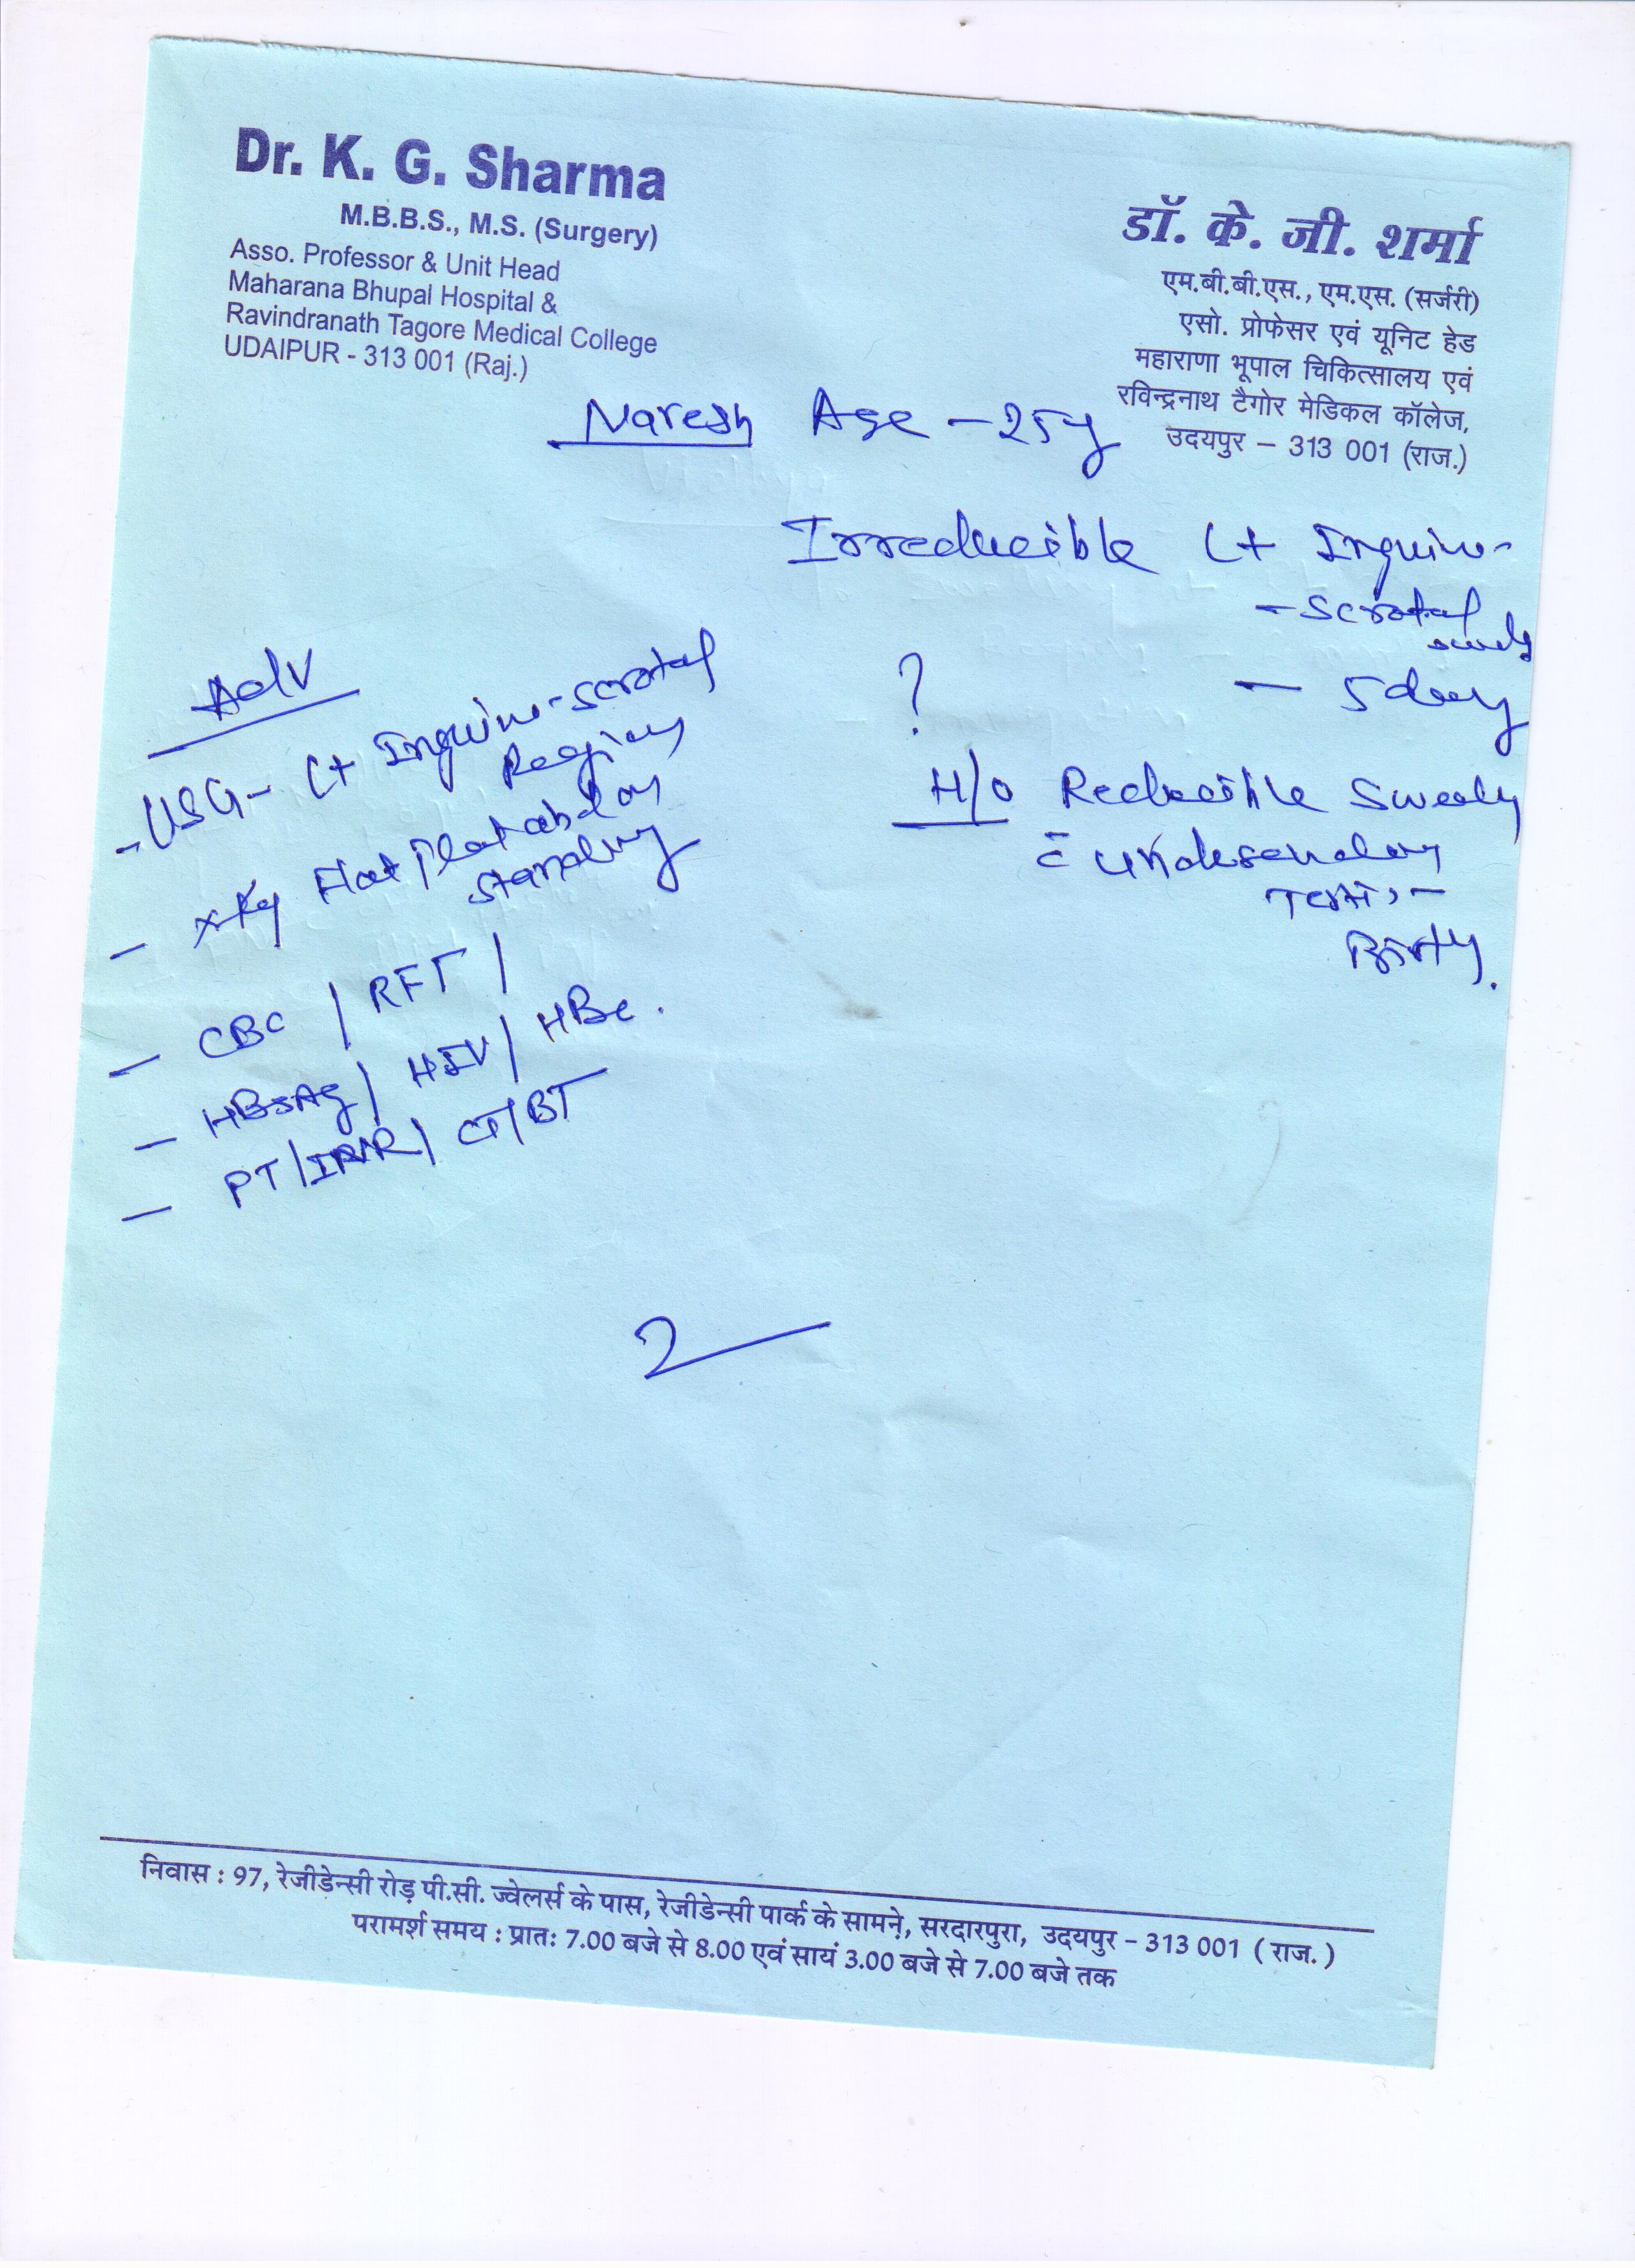 Dr. K. G. Sharma
M.B.B.S., M.S. (Surgery)
Asso. Professor & Unit Head
Maharana Bhupal Hospital &
Ravindranath Tagore Medical College
UDAIPUR - 313 001 (Raj.)
डॉ. के. जी. शर्मा
एम.बी.बी.एस., एम.एस. (सर्जरी)
एसो. प्रोफेसर एवं यूनिट हेड
महाराणा भूपाल चिकित्सालय एवं
रविन्द्रनाथ टैगोर मेडिकल कॉलेज,
उदयपुर – 313 001 (राज.)
Naresh Age - 25y
Irreducible Lt Inguino-
- Scrotal
- 5 day
?
H/o Reducible
c̄ undescended
Testis -
Adv
- USG - Lt Inguino-scrotal
Region
- X-Ray Flat Plat abd
standing
- CBC / RFT /
- HBsAg / HIV /
- PT / INR / CT/BT
निवास : 97, रेजीडेन्सी रोड़ पी.सी. ज्वेलर्स के पास, रेजीडेन्सी पार्क के सामने, सरदारपुरा, उदयपुर – 313 001 ( राज. )
परामर्श समय : प्रातः 7.00 बजे से 8.00 एवं सायं 3.00 बजे से 7.00 बजे तक